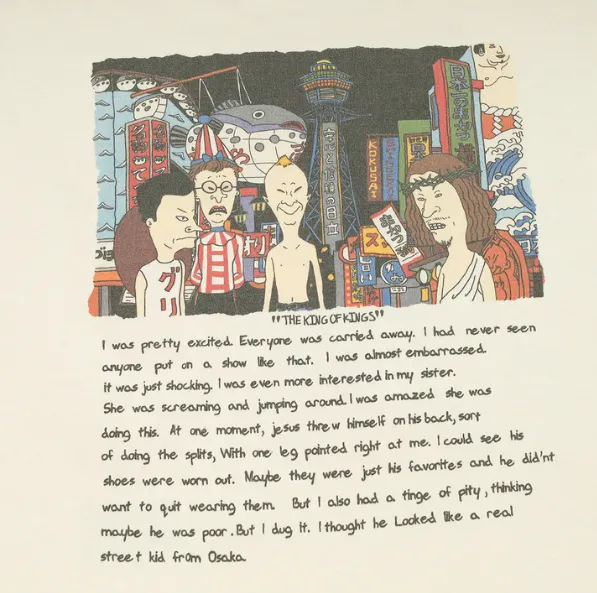 日本一の
KOKUSAI
グリ
"THE KING OF KINGS"
I was pretty excited. Everyone was carried away. I had never seen
anyone put on a show like that. I was almost embarrassed.
it was just shocking. I was even more interested in my sister.
She was screaming and jumping around. I was amazed she was
doing this. At one moment, jesus threw himself on his back, sort
of doing the splits, With one leg pointed right at me. I could see his
shoes were worn out. Maybe they were just his favorites and he did'nt
want to quit wearing them. But I also had a tinge of pity, thinking
maybe he was poor. But I dug it. I thought he Looked like a real
street kid from Osaka.